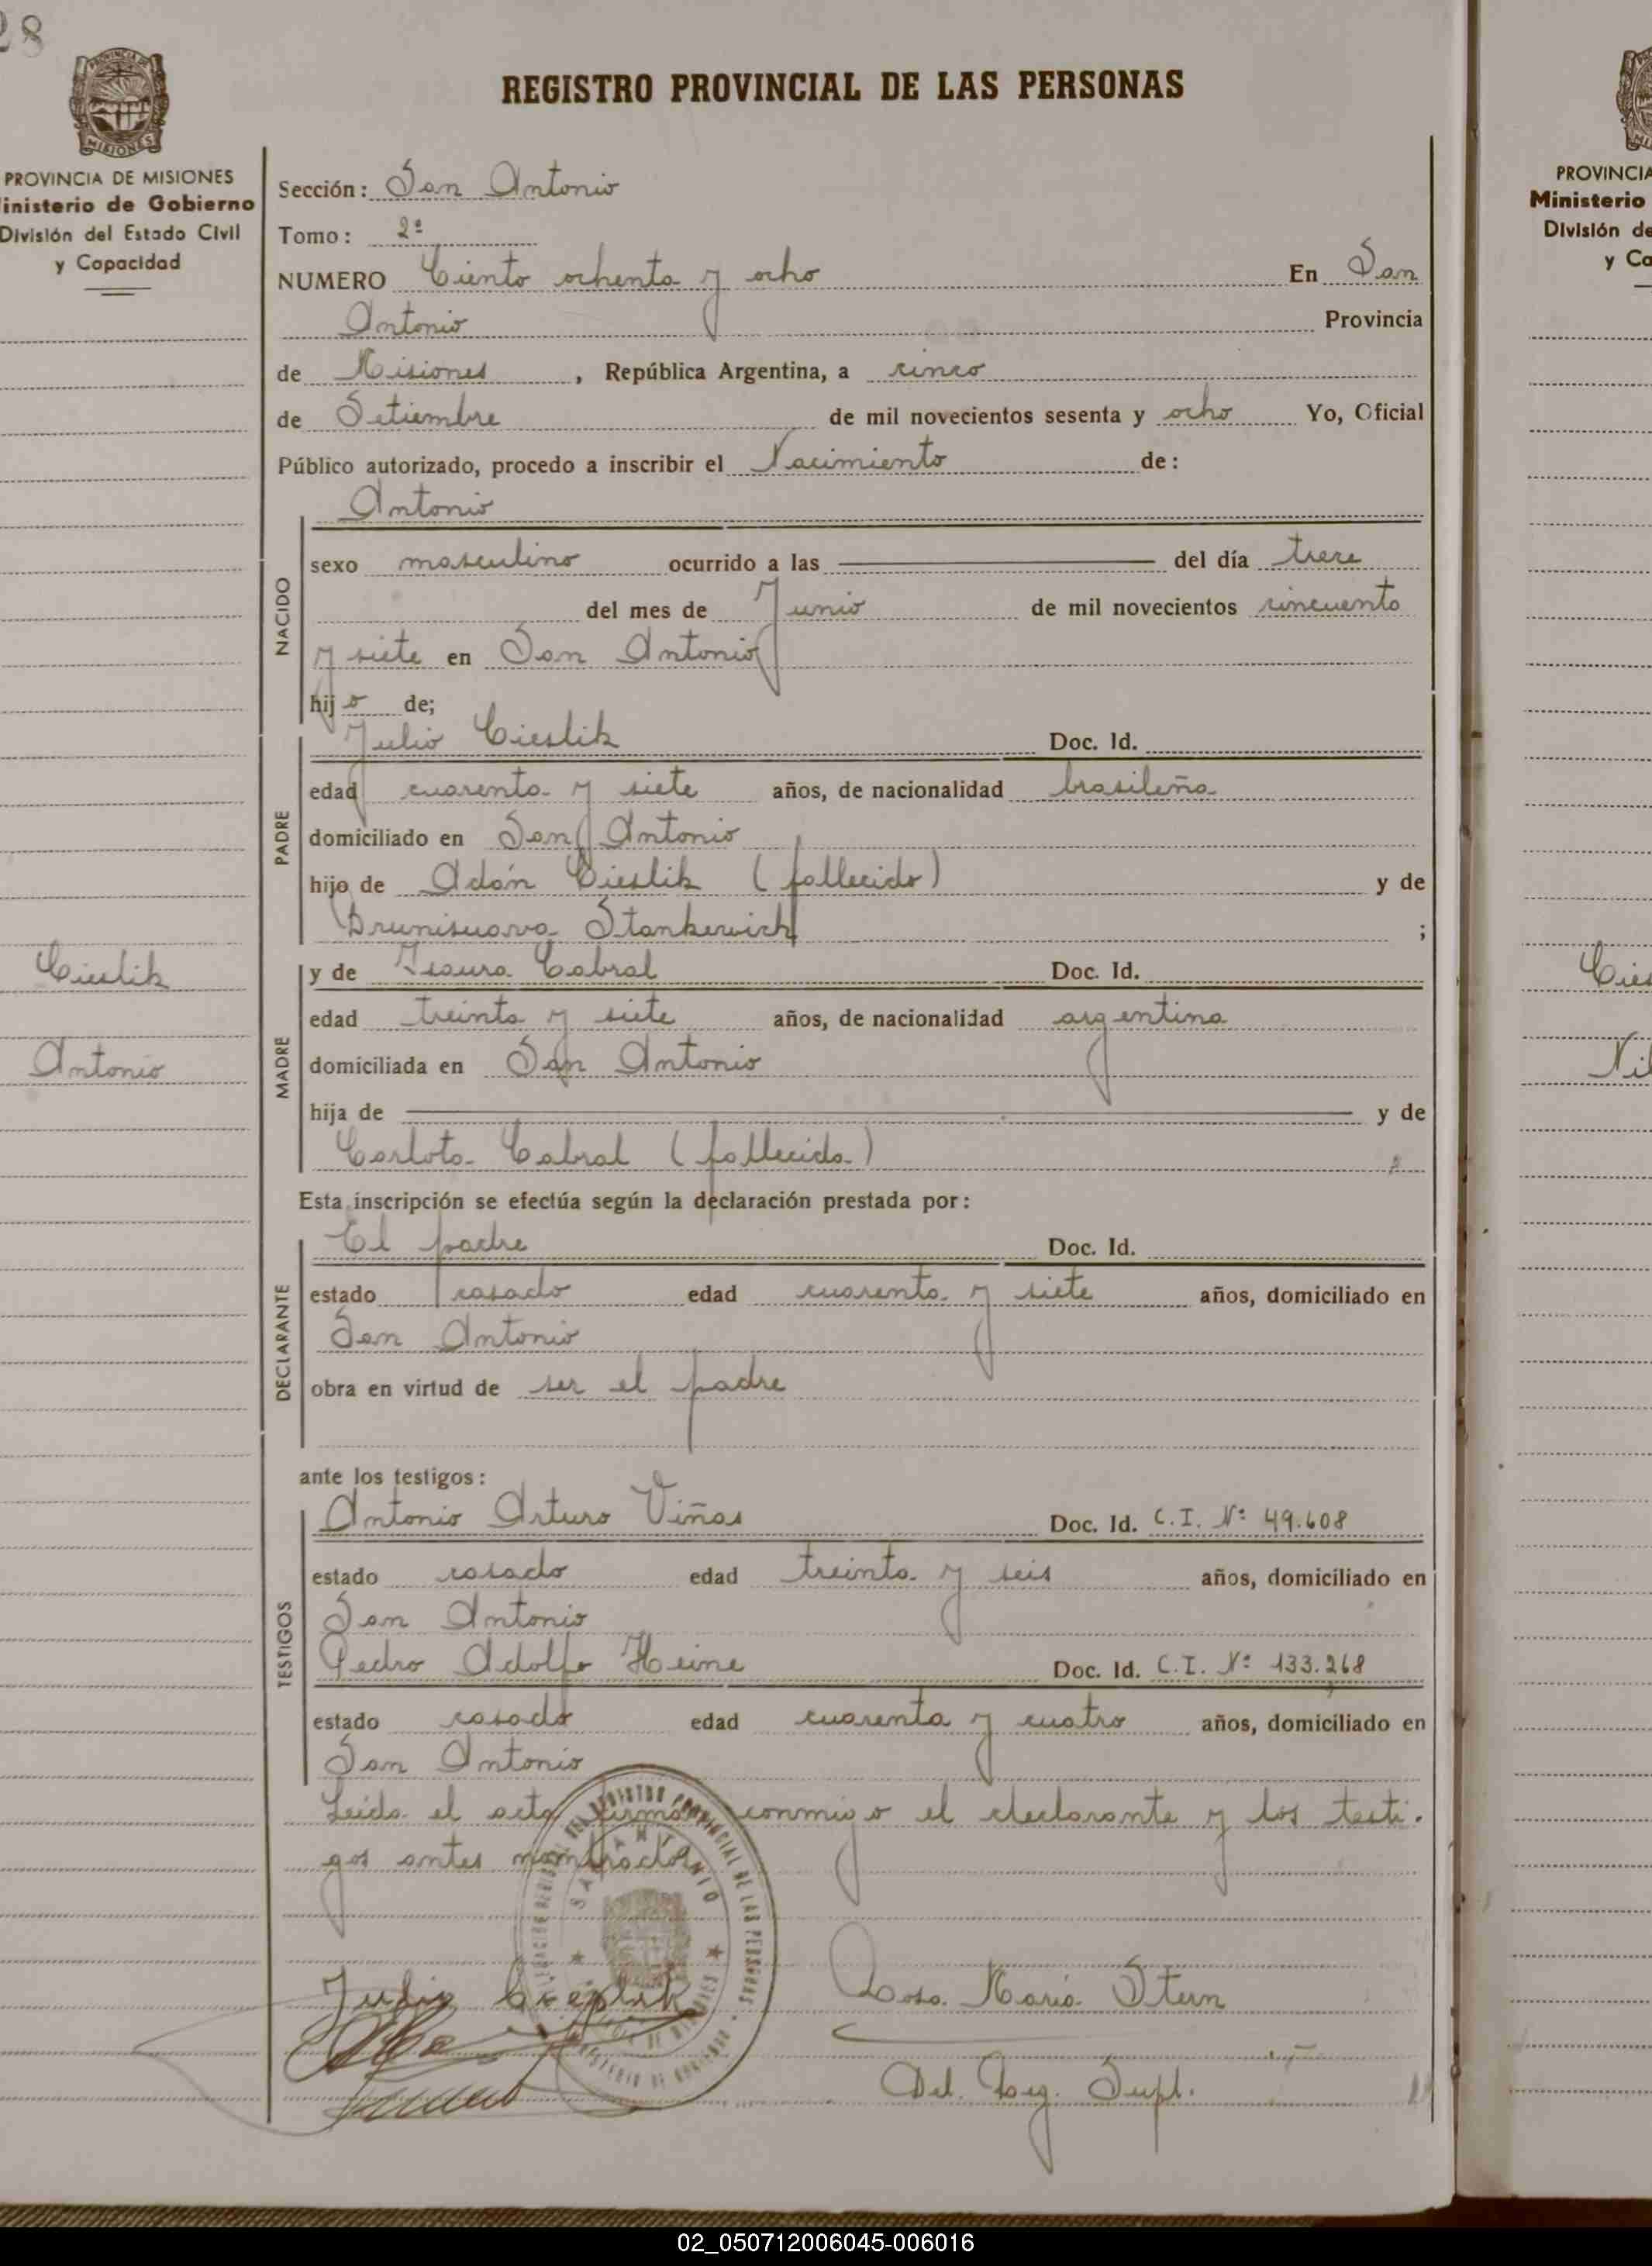 28
REGISTRO PROVINCIAL DE LAS PERSONAS
PROVINCIA DE MISIONES
inisterio de Gobierno
División del Estado Civil
y Capacidad
Sección: San Antonio
Tomo: 2º
NUMERO Ciento ochenta y ocho En San
Antonio Provincia
de Misiones, República Argentina, a cinco
de Setiembre de mil novecientos sesenta y ocho Yo, Oficial
Público autorizado, procedo a inscribir el Nacimiento de:
Antonio
NACIDO
sexo masculino ocurrido a las del día trece
del mes de Junio de mil novecientos cincuenta
y siete en San Antonio
hijo de;
PADRE
Julio Cieslik Doc. Id.
edad cuarenta y siete años, de nacionalidad brasileña
domiciliado en San Antonio
hijo de Adán Cieslik (fallecido) y de
Stankewich ;
Cieslik
Antonio
MADRE
y de Isaura Cabral Doc. Id.
edad treinta y siete años, de nacionalidad argentina
domiciliada en San Antonio
hija de y de
Carlota Cabral (fallecida)
Esta inscripción se efectúa según la declaración prestada por:
DECLARANTE
El padre Doc. Id.
estado casado edad cuarenta y siete años, domiciliado en
San Antonio
obra en virtud de ser el padre
ante los testigos:
TESTIGOS
Antonio Arturo Viñas Doc. Id. C.I. Nº 49.608
estado casado edad treinta y seis años, domiciliado en
San Antonio
Pedro Adolfo Heine Doc. Id. C.I. Nº 133.268
estado casado edad cuarenta y cuatro años, domiciliado en
San Antonio
Leída el acta firman conmigo el declarante y los testi-
gos antes nombrados
SAN ANTONIO
REGISTRO PROVINCIAL DE LAS PERSONAS
Julio Cieslik
Rosa María Stern
Del. Reg. Supl.
PROVINCIA
Ministerio
División de
y Ca
Cies
Nil
02_050712006045-006016